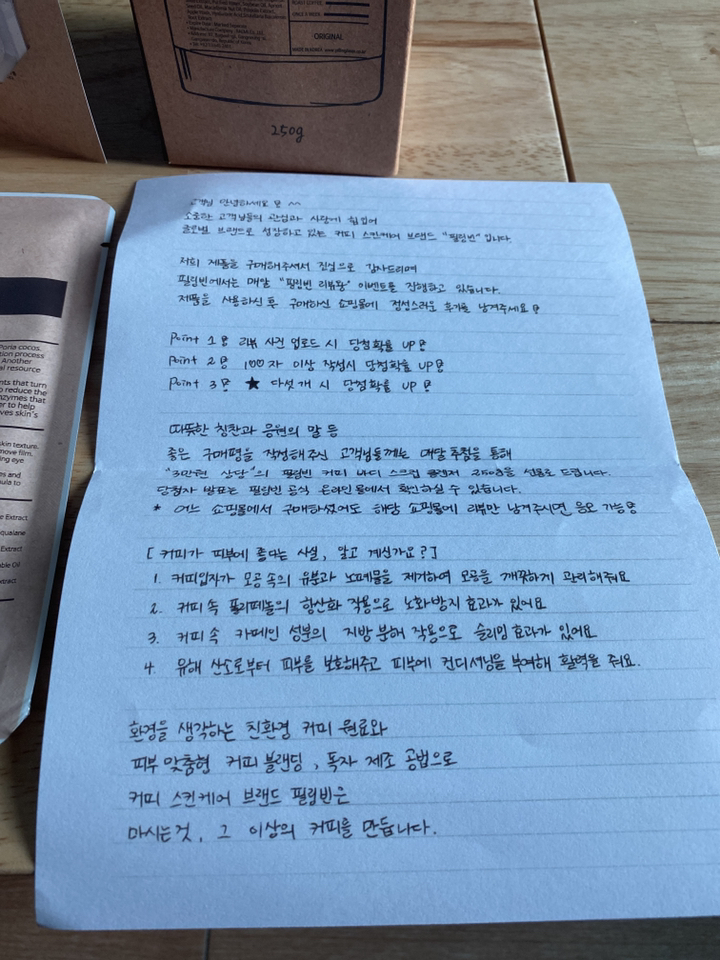 ORIGINAL
250g
Poria cocos.
tion process
Another
al resource
nts that turn
o reduce the
nzymes that
er to help
ves skin's
skin texture.
move film.
ing eye
es and
mula to
Extract
qualane
Extract
ble Oil
xtract
고객님 안녕하세요 ^^
소중한 고객님들의 관심과 사랑에 힘입어
글로벌 브랜드로 성장하고 있는 커피 스킨케어 브랜드 "필링빈" 입니다.
저희 제품을 구매해주셔서 진심으로 감사드리며
필링빈에서는 매달 "필링빈 리뷰왕" 이벤트를 진행하고 있습니다.
제품을 사용하신 후 구매하신 쇼핑몰에 정성스러운 후기를 남겨주세요!
Point 1! 리뷰 사진 업로드 시 당첨확률 UP!
Point 2! 100자 이상 작성시 당첨확률 UP!
Point 3! ★ 다섯개 시 당첨확률 UP!
따뜻한 칭찬과 응원의 말 등
좋은 구매평을 작성해주신 고객님들께는 매달 추첨을 통해
"3만원 상당"의 필링빈 커피 바디 스크럽 클렌저 250g을 선물로 드립니다.
당첨자 발표는 필링빈 공식 온라인몰에서 확인하실 수 있습니다.
* 어느 쇼핑몰에서 구매하셨어도 해당 쇼핑몰에 리뷰만 남겨주시면 응모 가능!
[ 커피가 피부에 좋다는 사실, 알고 계신가요? ]
1. 커피입자가 모공 속의 유분과 노폐물을 제거하여 모공을 깨끗하게 관리해줘요
2. 커피 속 폴리페놀의 항산화 작용으로 노화방지 효과가 있어요
3. 커피 속 카페인 성분의 지방 분해 작용으로 슬리밍 효과가 있어요
4. 유해 산소로부터 피부를 보호해주고 피부에 컨디셔닝을 부여해 활력을 줘요.
환경을 생각하는 친환경 커피 원료와
피부 맞춤형 커피 블랜딩, 독자 제조 공법으로
커피 스킨케어 브랜드 필링빈은
마시는 것, 그 이상의 커피를 만듭니다.